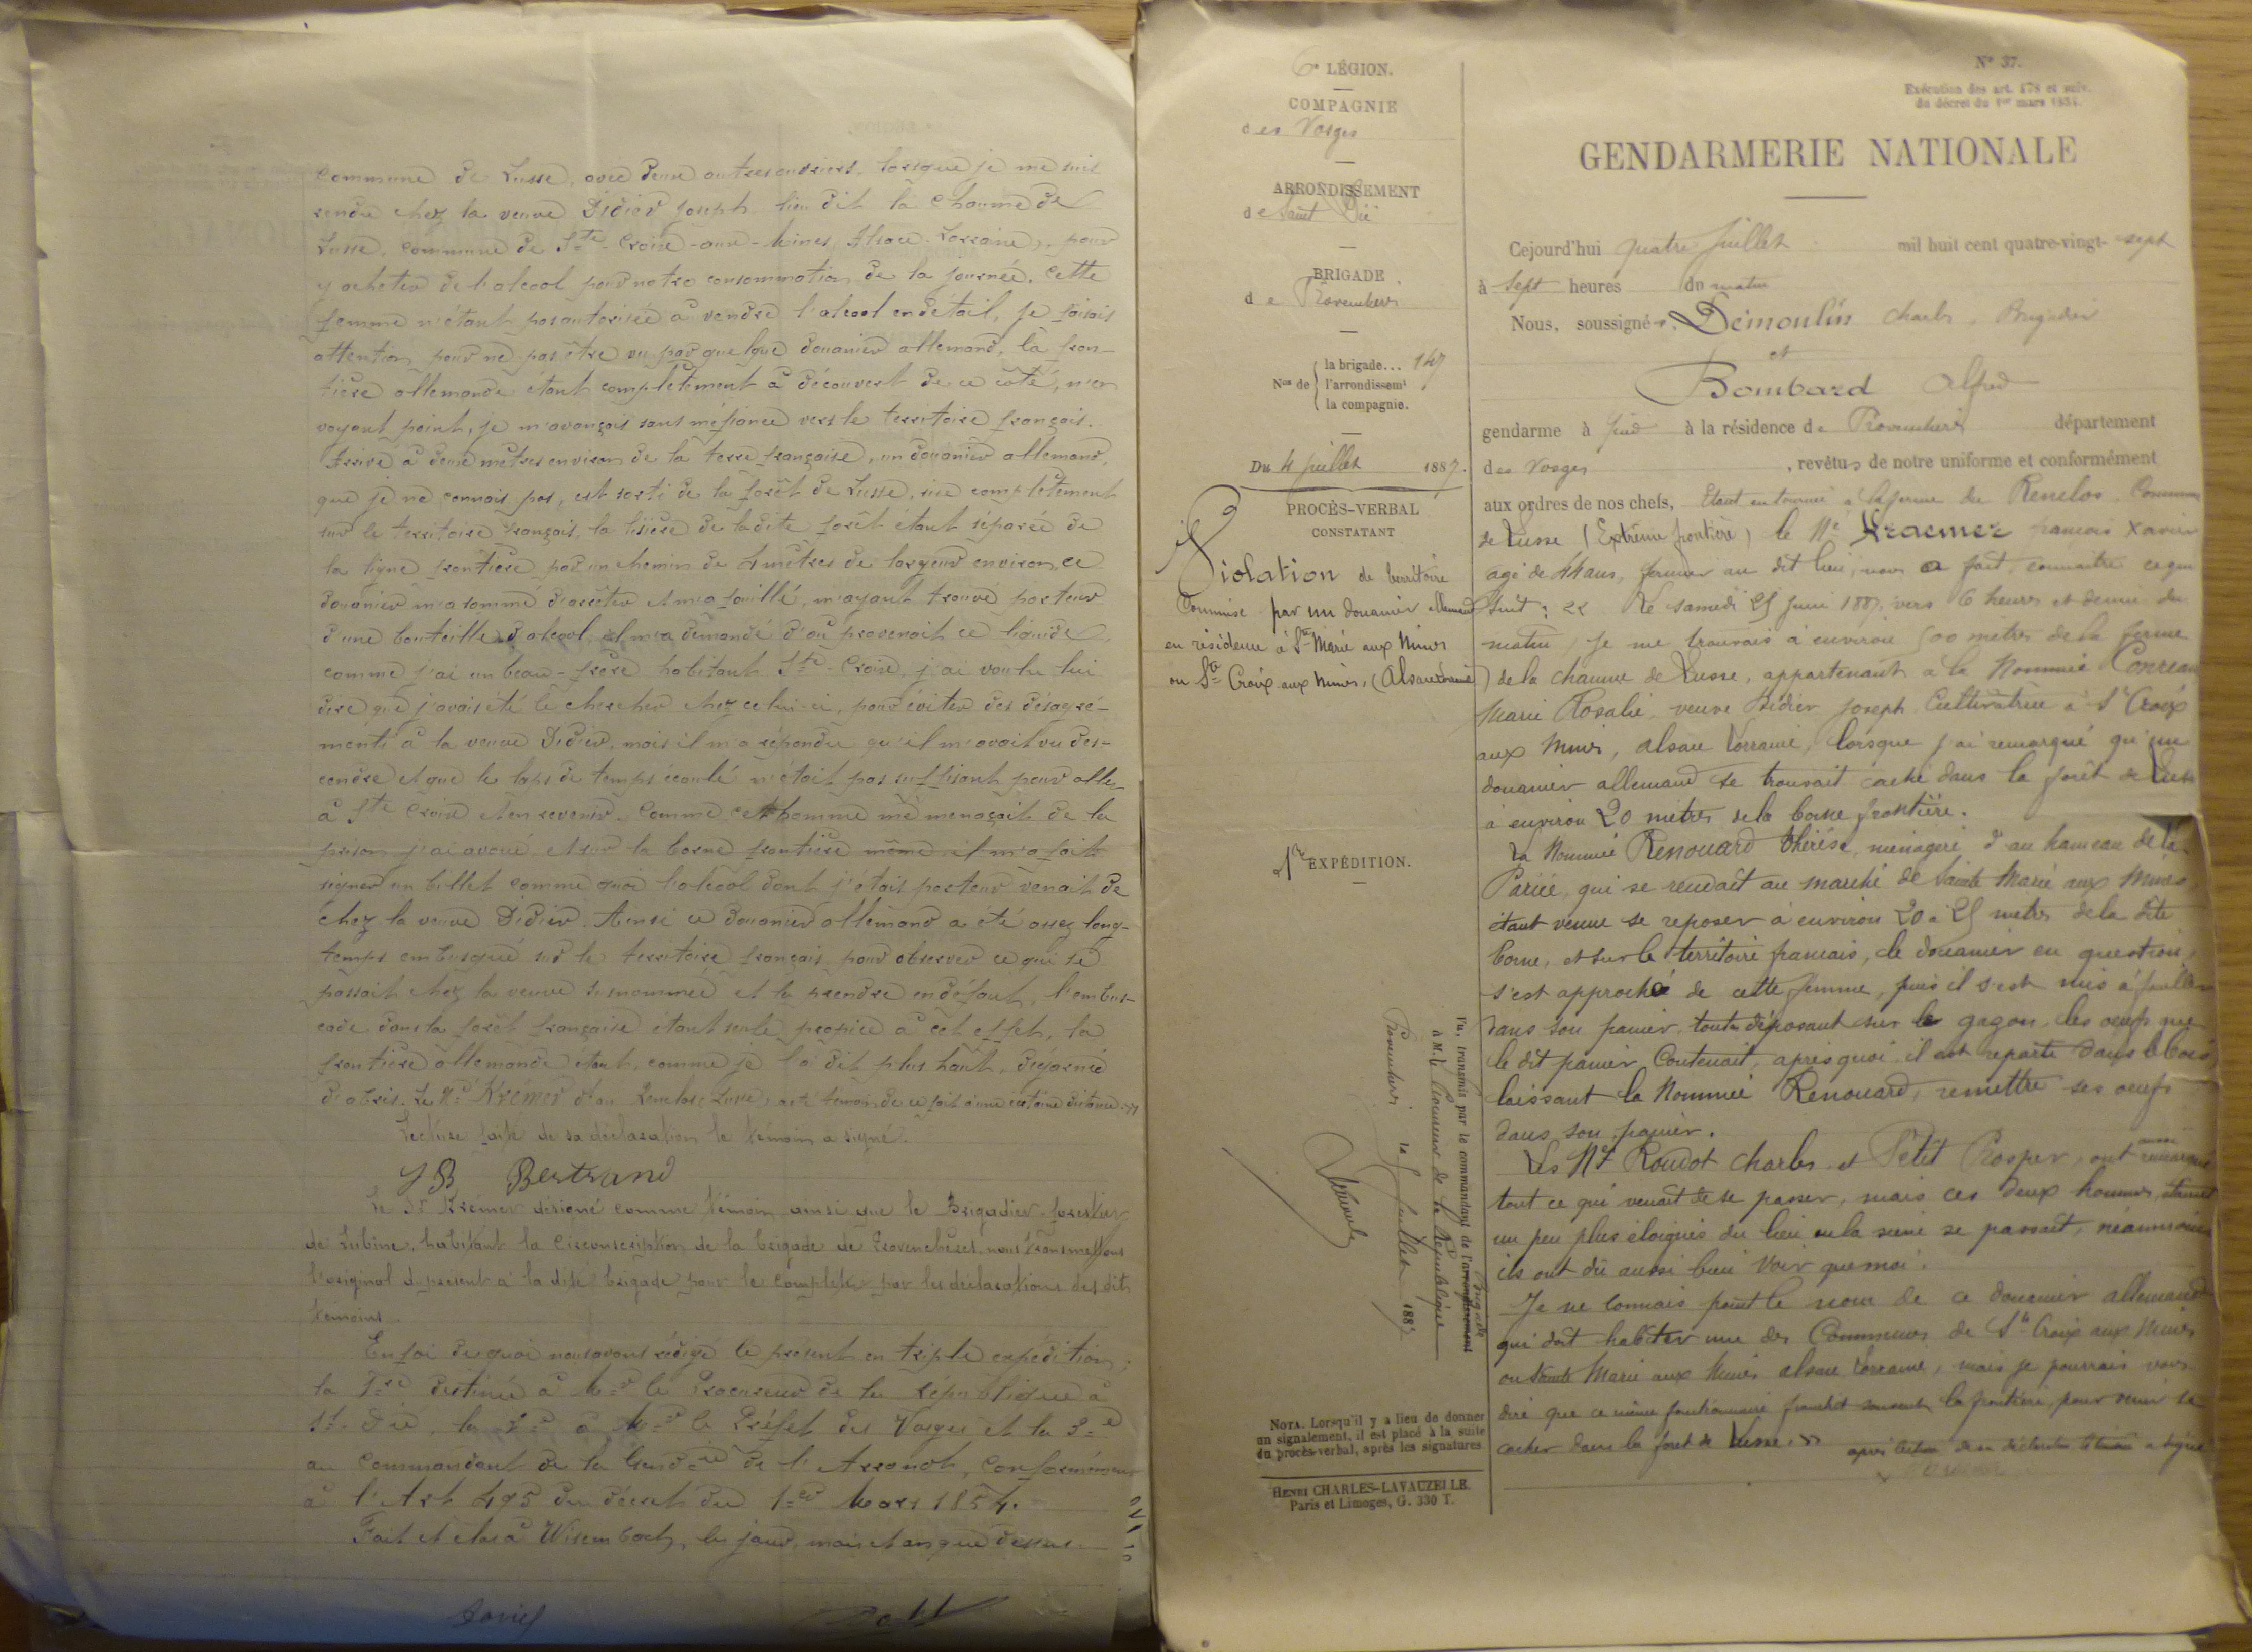 commune de Lusse, avec deux autres ouvriers, lorsque je me suis
rendu chez la veuve Didier Joseph lieu dit la Chaume de
Lusse, commune de Ste Croix-aux-Mines, Alsace-Lorraine, pour
y acheter de l'alcool pour notre consommation de la journée. Cette
femme n'étant pas autorisée à vendre l'alcool en détail, je faisais
attention pour ne pas être vu par quelque douanier allemand, la fron-
tière allemande étant complètement à découvert de ce côté, n'en
voyant point, je m'avançais sans méfiance vers le territoire français.
Arrivé à deux mètres environ de la terre française, un douanier allemand,
que je ne connais pas, est sorti de la forêt de Lusse, sise complètement
sur le territoire français, la lisière de ladite forêt étant séparée de
la ligne frontière par un chemin de 4 mètres de largeur environ, ce
douanier m'a sommé d'arrêter et m'a fouillé, m'ayant trouvé porteur
d'une bouteille d'alcool, il m'a demandé d'où provenait ce liquide,
comme j'ai un beau-frère habitant Ste Croix, j'ai voulu lui
dire que j'avais été le chercher chez celui-ci, pour éviter des désagré-
ments à la veuve Didier, mais il m'a répondu qu'il m'avait vu des-
cendre et que le laps de temps écoulé n'était pas suffisant pour aller
à Ste Croix et en revenir. Comme cet homme me menaçait de la
prison j'ai avoué et sur la borne frontière même il m'a fait
signer un billet comme quoi l'alcool dont j'étais porteur venait de
chez la veuve Didier. Ainsi ce douanier allemand a été assez long-
temps embusqué sur le territoire français pour observer ce qui se
passait chez la veuve susnommée et la prendre en défaut, l'embus-
cade dans la forêt française étant seule propice à cet effet, la
frontière allemande étant, comme je l'ai dit plus haut, dégarnie
d'abris. Le Né Krémer d'au Renclos, Lusse, a été témoin de ce fait à une certaine distance »
Lecture faite de sa déclaration le témoin a signé.
JB Bertrand
Le Sr Krémer désigné comme témoin ainsi que le Brigadier-forestier
de Lubine, habitant la circonscription de la brigade de Provenchères, nous transmettons
l'original du présent à la dite brigade pour le compléter par les déclarations des dits
témoins.
En foi de quoi nous avons rédigé le présent en triple expédition;
la 1re destinée à Mr le Procureur de la République à
St. Dié, la 2e à Mr le Préfet des Vosges et la 3e
au Commandant de la Gendrie de l'Arrondt, conformément
à l'Art 495 du décret du 1er Mars 1854.
Fait et clos à Wisembach, les jour, mois et an que dessus.
6e LÉGION.
COMPAGNIE
des Vosges
ARRONDISSEMENT
de Saint Dié
BRIGADE
de Provenchères
Nos de
la brigade... 147
l'arrondissemt
la compagnie.
Du 4 juillet 1887.
PROCÈS-VERBAL
CONSTATANT
Violation de territoire
Commise par un douanier allemand
en résidence à Ste Marie aux Mines
ou Ste Croix aux Mines, (Alsace Lorraine)
1re EXPÉDITION.
Vu, transmis par le commandant de l'arrondissement
Brigade
à M. le Procureur de la République
Provenchères le juillet 1887
NOTA. Lorsqu'il y a lieu de donner
un signalement, il est placé à la suite
du procès-verbal, après les signatures.
HENRI CHARLES-LAVAUZELLE
Paris et Limoges, G. 330 T.
N° 37.
Exécution des art. 478 et suiv.
du décret du 1er mars 1854.
GENDARMERIE NATIONALE
Cejourd'hui quatre juillet mil huit cent quatre-vingt-sept
à sept heures du matin
Nous, soussignés, Démoulin Charles, Brigadier
et
Bombard Alfred
gendarme à pied à la résidence de Provenchères département
des Vosges, revêtus de notre uniforme et conformément
aux ordres de nos chefs, Etant en tournée à la ferme du Renclos, Commune
de Lusse (Extrême frontière) le Né Kraemer françois Xavier
agé de 44 ans, fermier au dit lieu, nous a fait connaitre ce qui
suit: « Le samedi 25 Juin 1887, vers 6 heures et demie du
matin, je me trouvais à environ 500 mètres de la ferme
de la chaume de Lusse, appartenant à la Nommée Conreau
Marie Rosalie, veuve Didier Joseph Cultivatrice à Ste Croix
aux Mines, alsace Lorraine, lorsque j'ai remarqué qu'un
douanier allemand se trouvait caché dans la forêt de Lusse
à environ 20 mètres de la borne frontière.
La Nommée Renouard Thérèse, ménagère d'au hameau de la
Pariée, qui se rendait au marché de Sainte Marie aux Mines
étant venue se reposer à environ 20 à 25 mètres de la dite
borne, et sur le territoire français, le douanier en question,
s'est approché de cette femme, puis il s'est mis à fouiller
dans son panier, tout en déposant sur le gazon les oeufs que
le dit panier Contenait, après quoi il est reparti dans le bois
laissant la Nommée Renouard, remettre ses oeufs
dans son panier.
Les Nés Roudot Charles et Petit Prosper, ont remarqué
tout ce qui venait de se passer, mais ces deux hommes, étaient
un peu plus éloignés du lieu ou la scène se passait, néanmoins
ils ont dû aussi bien voir que moi.
Je ne connais point le nom de ce douanier allemand
qui doit habiter une des Communes de Ste Croix aux Mines
ou Sainte Marie aux Mines alsace Lorraine, mais je pourrais vous
dire que ce même fonctionnaire franchit souvent la frontière, pour venir se
cacher dans la forêt de Lusse. » après lecture de sa déclaration le témoin a signé